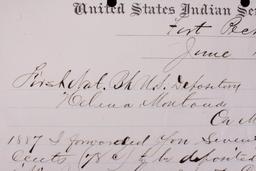 United States Indian Se
Fort Pec
June
First Nat. Bk U.S. Depository
Helena Montana
On M
1887 I forwarded you Seven
Cents ( ) to be deposited